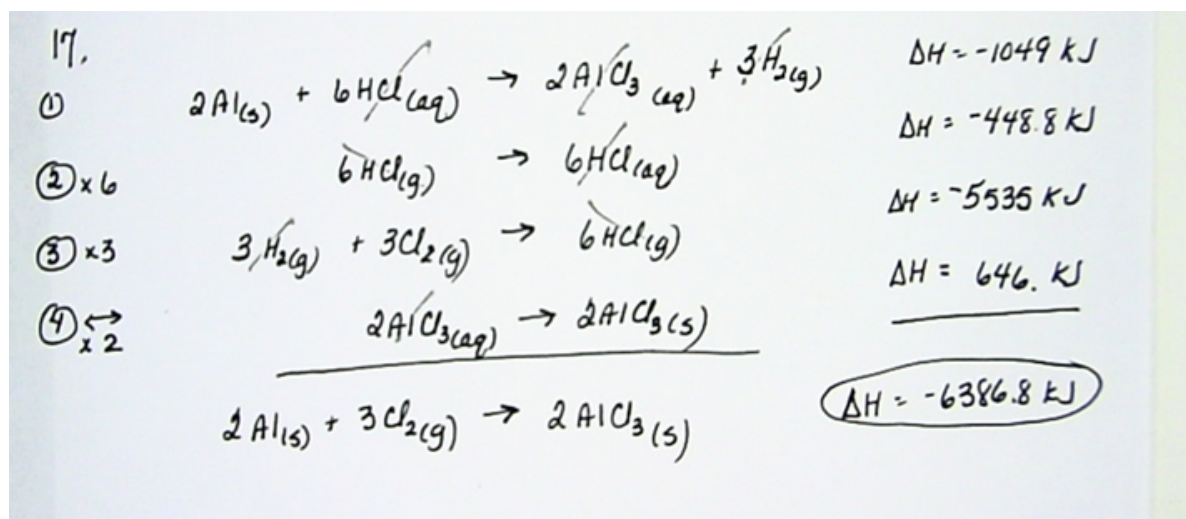 17.
① 2Al(s) + 6HCl(aq) → 2AlCl3(aq) + 3H2(g) ΔH = -1049 KJ
② x6 6HCl(g) → 6HCl(aq) ΔH = -448.8 KJ
③ x3 3H2(g) + 3Cl2(g) → 6HCl(g) ΔH = -5535 KJ
④ ↔ x2 2AlCl3(aq) → 2AlCl3(s) ΔH = 646. KJ
2Al(s) + 3Cl2(g) → 2AlCl3(s) ΔH = -6386.8 KJ